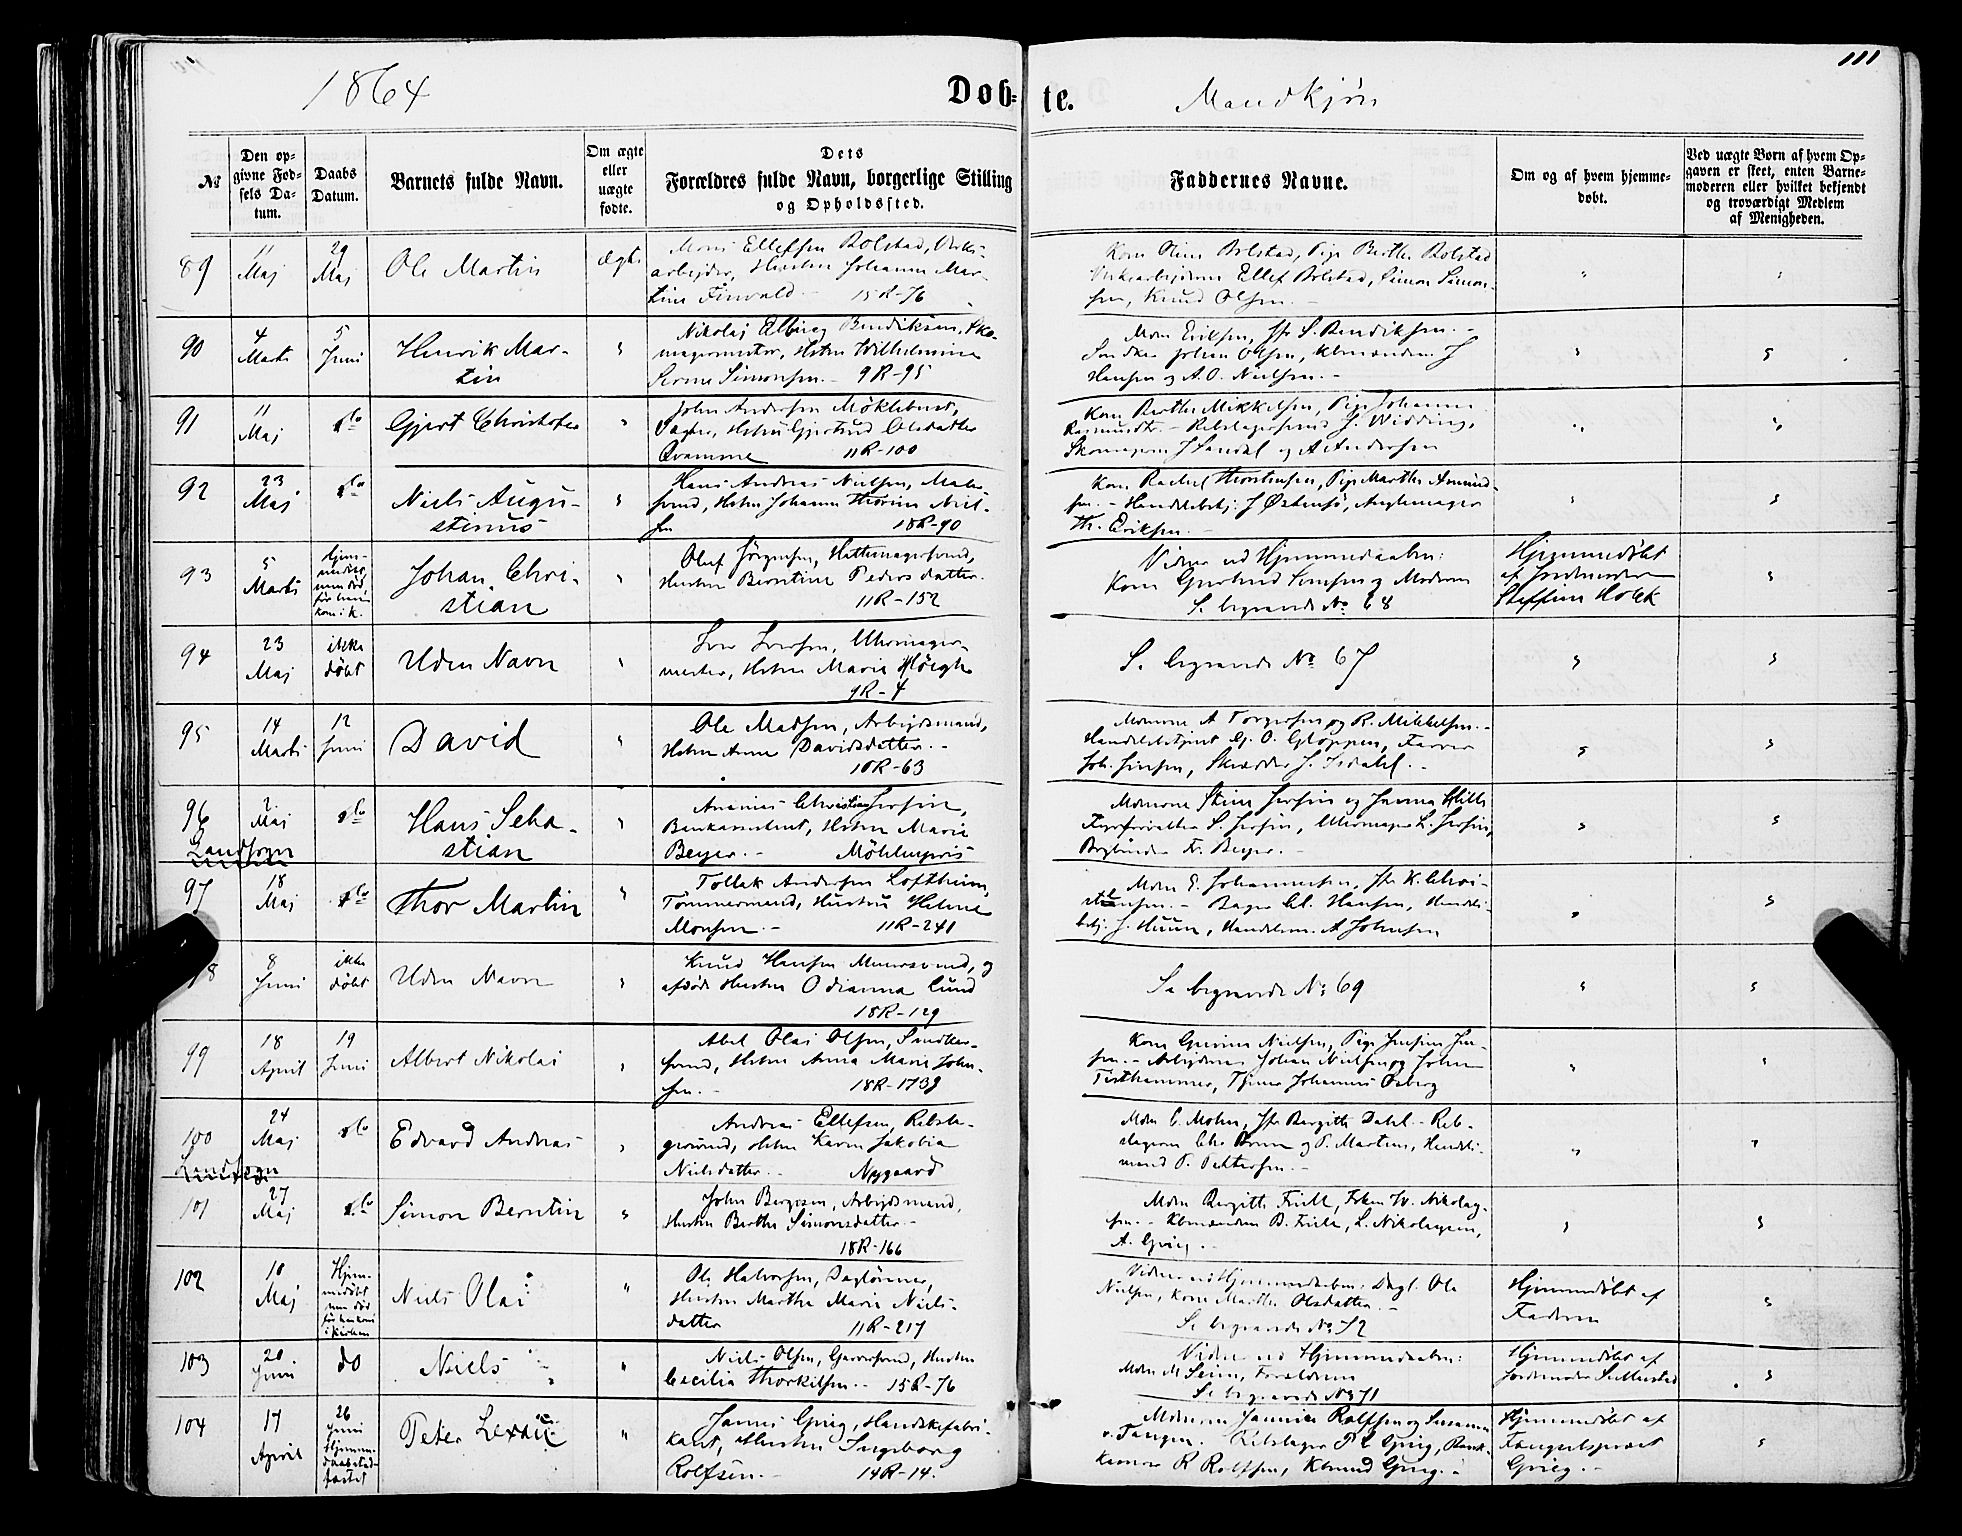 111
1864
Døb-
te.
Mandkjøn
№
Den op-
givne Fød-
sels Da-
tum.
Daabs
Datum.
Barnets fulde Navn.
Om ægte
eller
uægte
fødte.
Dets
Forældres fulde Navn, borgerlige Stilling
og Opholdssted.
Faddernes Navne.
Om og af hvem hjemme-
døbt.
Ved uægte Børn af hvem Op-
gaven er skeet, enten Barne-
moderen eller hvilket bekjendt
og troværdigt Medlem
af Menigheden.
89
11
Maj
29
Maj
Ole Martin
ægte
Mons Ellefsen Bolstad,
arbejder, Hustru Johanne Mar-
tine Finvold - 15R-76
Kone Stine Bolstad, Pige Berthe Bolstad
Ellef Bolstad, Simon Simon-
sen, Knud Olsen.
90
4
Marts
5
Juni
Henrik Mar-
tin
Nikolaj Elling Bendiksen, Sko-
magermester, Hstru Wilhelmine
Simonsen. - 9R-95
Mdm Eriksen, Jfr S. Bendiksen. -
Johan Olsen, Kbmændene J
Hansen og A. O. Nielsen. -
91
11
Maj
do
Gjert Christofer
John Andersen Møklebust,
Hstru Gjertrud Olsdatter
Qvamme 11R-100
Kone Berthe Mikkelsen, Pige Johanne
Rasmusdtr. - Rebslagersvend J. Widding,
J Sandal og A Andersen
92
23
Maj
do
Niels Augu-
stinus
Hans Andreas Nielsen, Maler-
svend, Hstru Johanne Thorine Niel-
sen 18R-90
Kone Rachel Thorstensen, Pige Marthe Amund-
sen. - Handelsbetj. J Østensø,
Th. Eriksen.
93
5
Marts
Hjem-
men død,
før han
kom i K.
Johan Chri-
stian
Oluf Jørgensen, Hattemagersvend,
Hustru Berntine Pedersdatter.
11R-152
Vidner ved Hjemmedaaben:
Kone Gjertrud Simsen og Moderen
Se begravede No 68
Hjemmedøbt
af Jordmoder
Steffine Holck
94
23
Maj
ikke
døbt
Uden Navn
Iver Iversen, Uhrmager-
mester, Hstru Marie Høegh
9R-4
Se begravede No 67
95
14
Marts
12
Juni
David
Ole Madsen, Arbejdsmand,
Hstru Anne Davidsdatter. -
10R-63
Mdmerne A Torgersen og R. Mikkelsen. -
Handelsbetjent O. Gloppen, Farver
Joh. Jensen, Skrædder J. Isdahl. -
96
2
Maj
do
Hans Seba-
stian
Ananias Christian
Bankassistent, Hstru Marie
Beyer. - Møhlenpris
Mdmerne Stine
Bogbinder Fr. Beyer. -
Landsogn
97
18
Maj
do
Thor Martin
Tollak Andersen Loftheim,
Tømmermand, Hustru Helene
Monsen. - 11R-241
Mdm E. Johannesen, Jfr K. Chri-
stensen. - Bager Cl. Hansen, Handels-
betj. J. Huun, Handelsm. A Johnsen
8
Juni
ikke
døbt
Uden Navn
Knud Hansen Murersvend, og
afdøde Hustru Odianna Lund
18R-129
Se begravede No 69
99
18
April
19
Juni
Albert Nikolai
Abel Olai Olsen, Snedker-
svend, Hstru Anna Marie John-
sen. - 18R-173
Kone Gurine Nielsen, Pige Jensine Jen-
sen. - Arbejderne Johan Nielsen og Johan
Fisthammer, Tjener Johannes Osberg
100
24
Maj
do
Edvard Andreas
Andreas Ellefsen, Rebsla-
gersvend, Hstru Karen Jakobia
Nielsdatter. - Nygaard
Mdm C. Mohn, Jfr Bergitte Dahl. - Reb-
slagerne Chr Brun og P. Martens, Handels-
mand P. Pettersen. -
Landsogn
101
27
Maj
do
Simon Berntin
John Bergesen, Arbejdsmand,
Hustru Berthe Simonsdatter. -
18R-166
Mdm Bergitte Friele, Frøken W. Nikolay-
sen. - Kbmændene B. Friele, L. Nikolaysen,
A. Grieg. -
102
10
Maj
Hjem-
medøbt
men død
før han kom
i Kirken
Niels Olai
Ole Halvorsen, Dagløner,
Hustru Marthe Marie Niels-
datter 11R-217
Vidner ved Hjemmedaaben: Dagl. Ole
Nielsen, Kone Marthe Olsdatter. -
Se begravede No 72
Hjemmedøbt af
Faderen
103
20
Juni
do
Niels
Niels Olsen, Garversvend, Hustru
Cecilia Thorkilsen. - 15R-76
Vidner ved Hjemmedaaben:
Mdm M Seim, Forældrene
Se begravede No 71
Hjemmedøbt af
Jordmoder S. Mustad
104
17
April
26
Juni
Hjemme-
daab stad-
fæstet
Peter Lexau
Jannes Grieg, Handskefabri-
kant, Hustru Ingeborg
Rolfsen. - 14R-14.
Mdmerne Jannike Rolfsen og Susanne
v. Tangen. Rebslager P L Grieg, Bank-
kasserer R Rolfsen, Kbmand Grieg. -
Hjemmedøbt af
Fængselspræst
Grieg. -